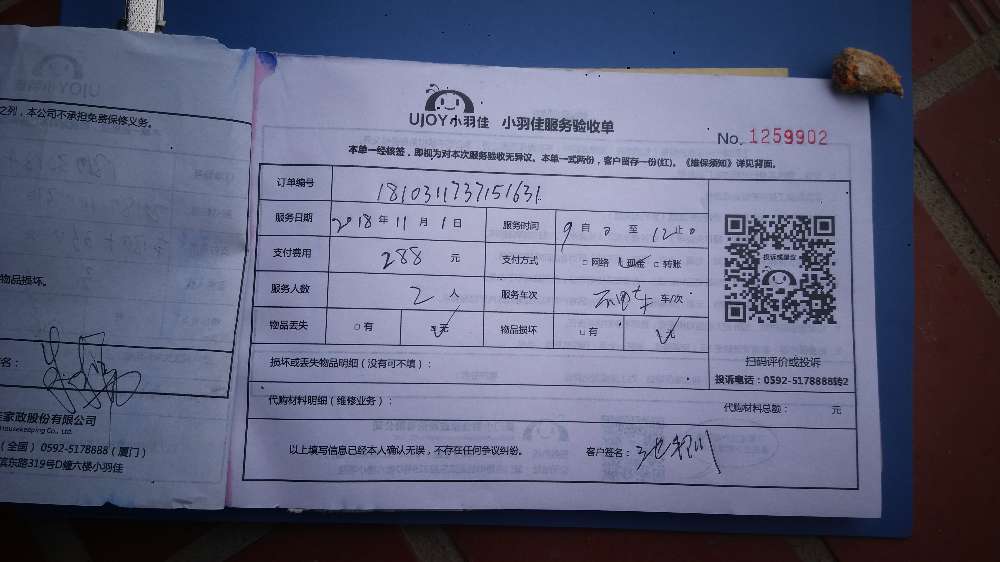 UJOY小羽佳
之列，本公司不承担免费保修义务。
物品损坏。
名：
家政股份有限公司
Housekeeping Co., Ltd.
（全国） 0592-5178888（厦门）
滨东路319号D幢六楼小羽佳
UJOY小羽佳 小羽佳服务验收单
No. 1259902
本单一经核签，即视为对本次服务验收无异议。本单一式两份，客户留存一份(红)。《维保须知》详见背面。
订单编号 1810311737151631
服务日期 2018年11月1日 服务时间 9自0至12止0
支付费用 288元 支付方式 □网络 ☑现金 □转账
服务人数 2人 服务车次 车/次
物品丢失 □有 ☑无 物品损坏 □有 ☑无
投诉或建议
扫码评价或投诉
投诉电话：0592-5178888转2
损坏或丢失物品明细（没有可不填）：
代购材料明细（维修业务）： 代购材料总额： 元
以上填写信息已经本人确认无误，不存在任何争议纠纷。 客户签名：